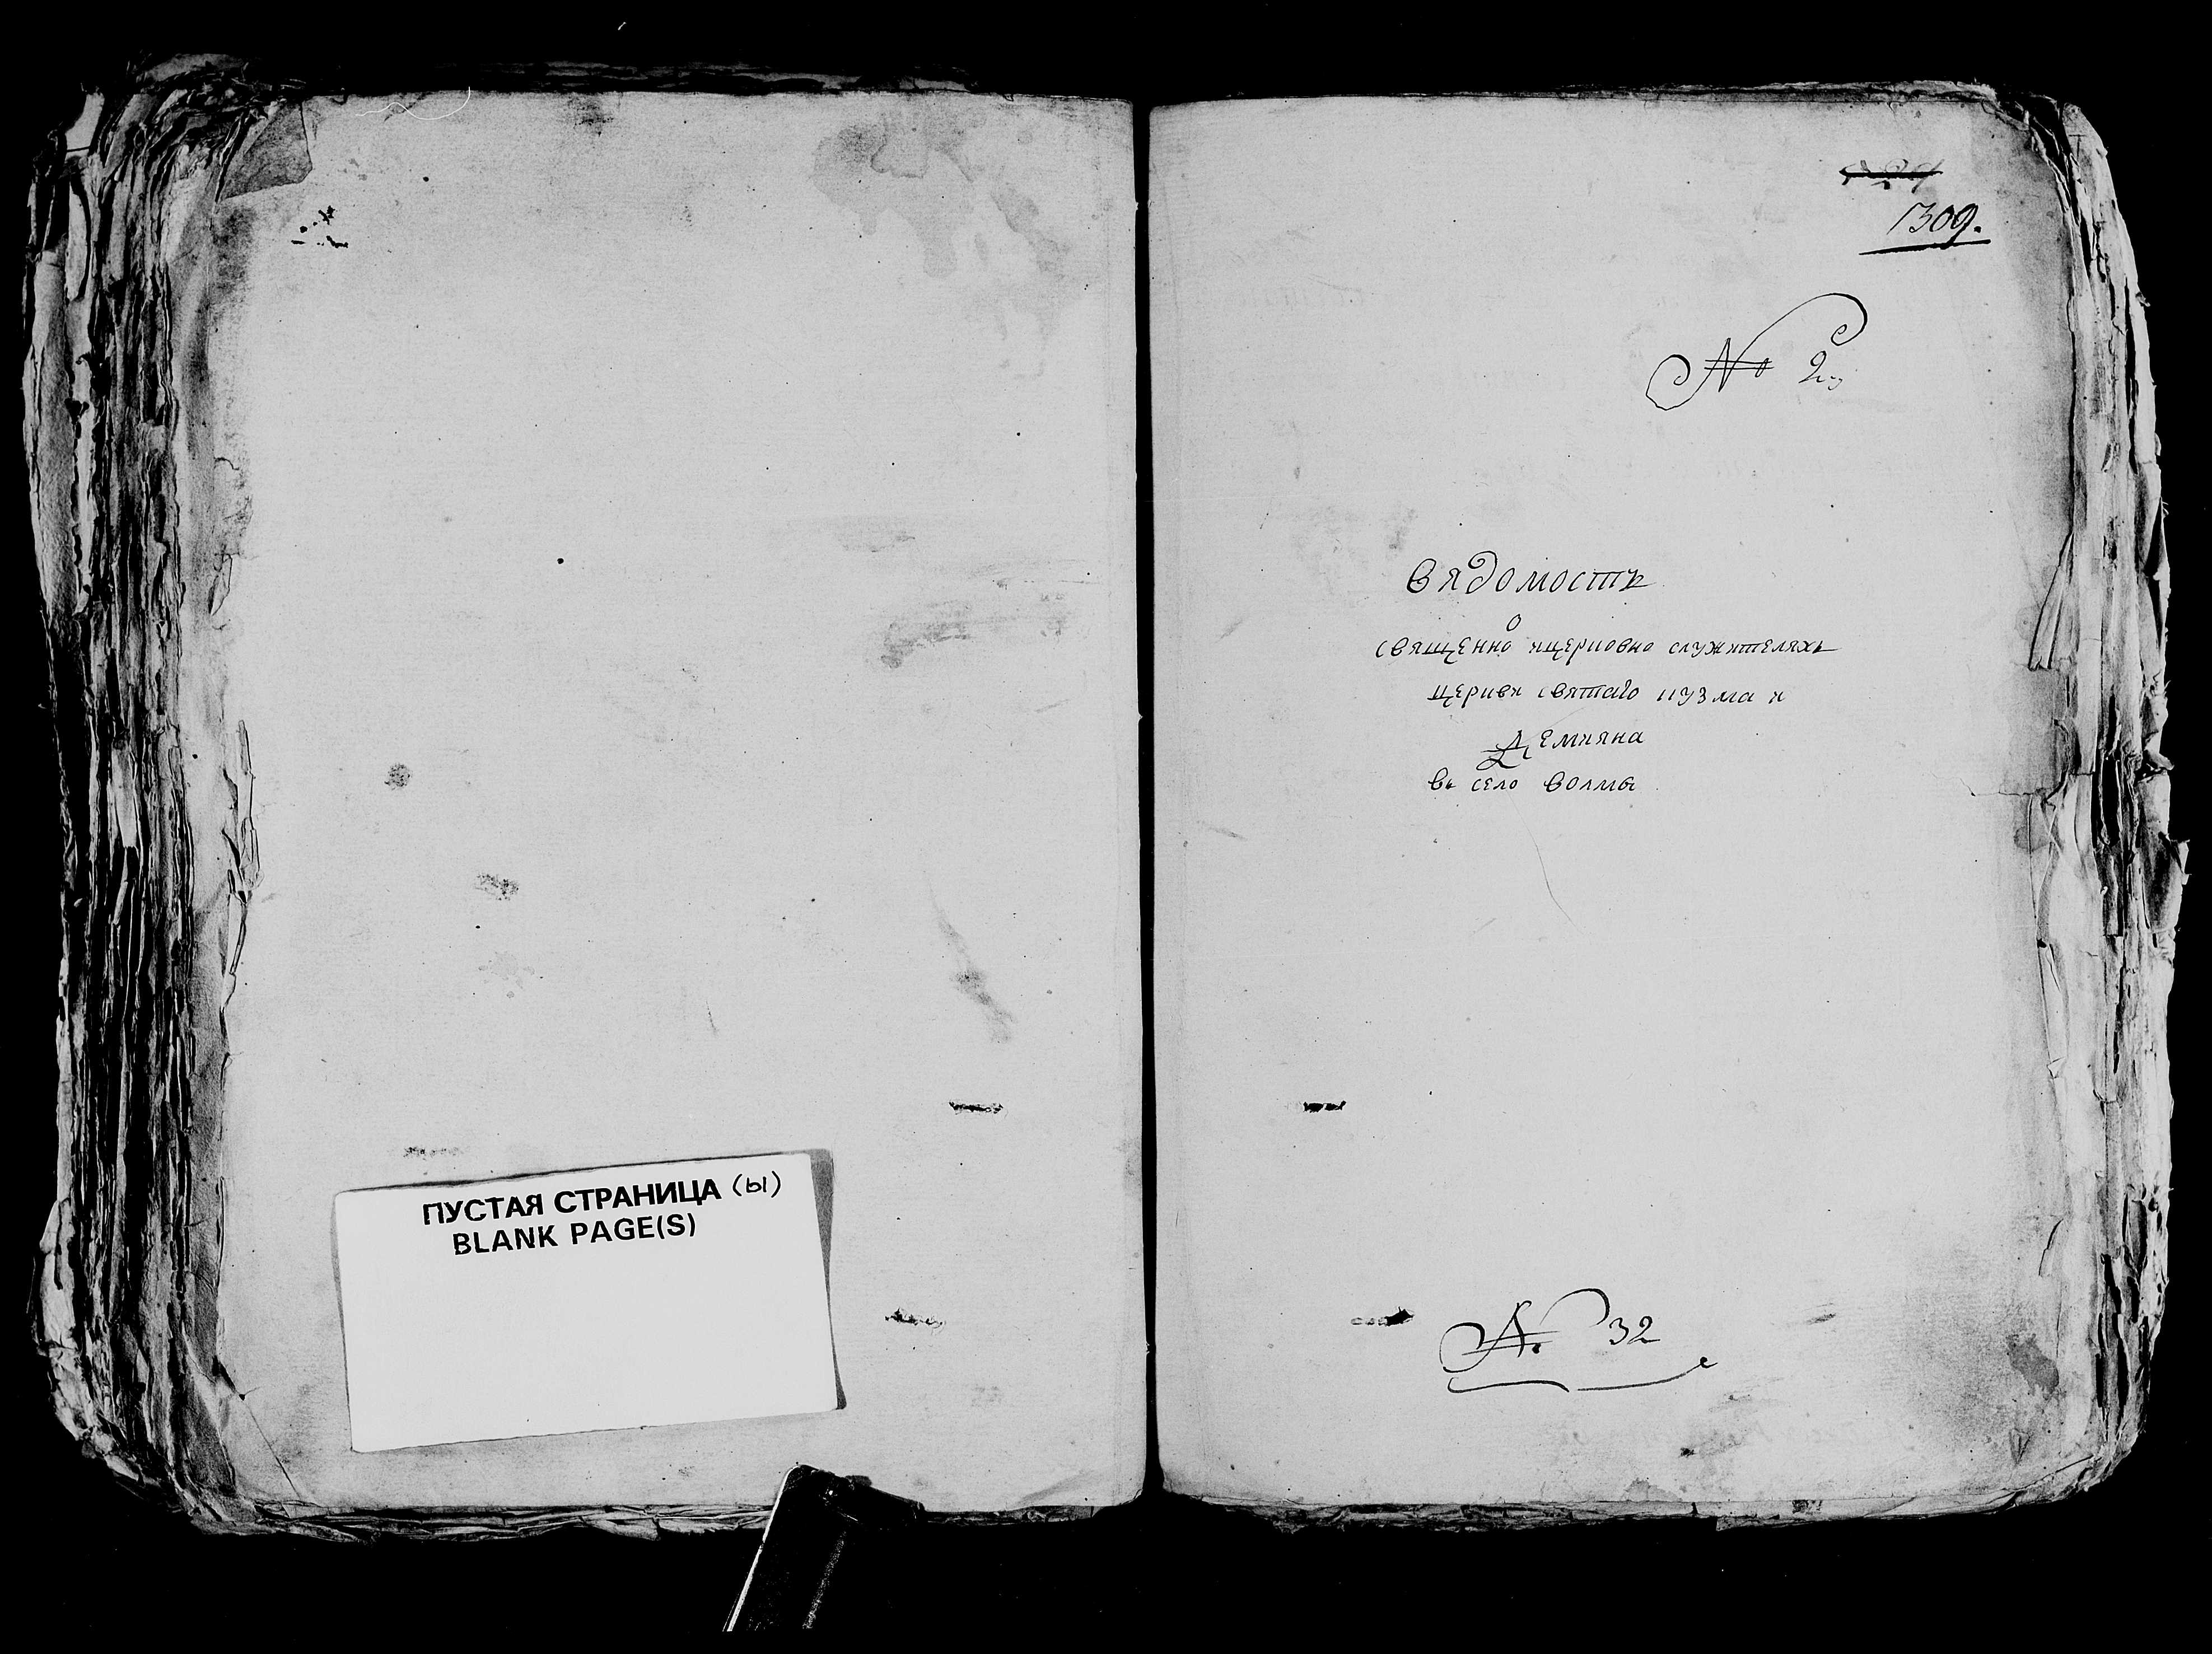 ПУСТАЯ СТРАНИЦА (ы)
BLANK PAGE(S)
1309.
№ 2й
Вядомость
о
священно ицерковно служителяхъ
церкви святаго кузма и
Демияна
въ село волмы
№ 32